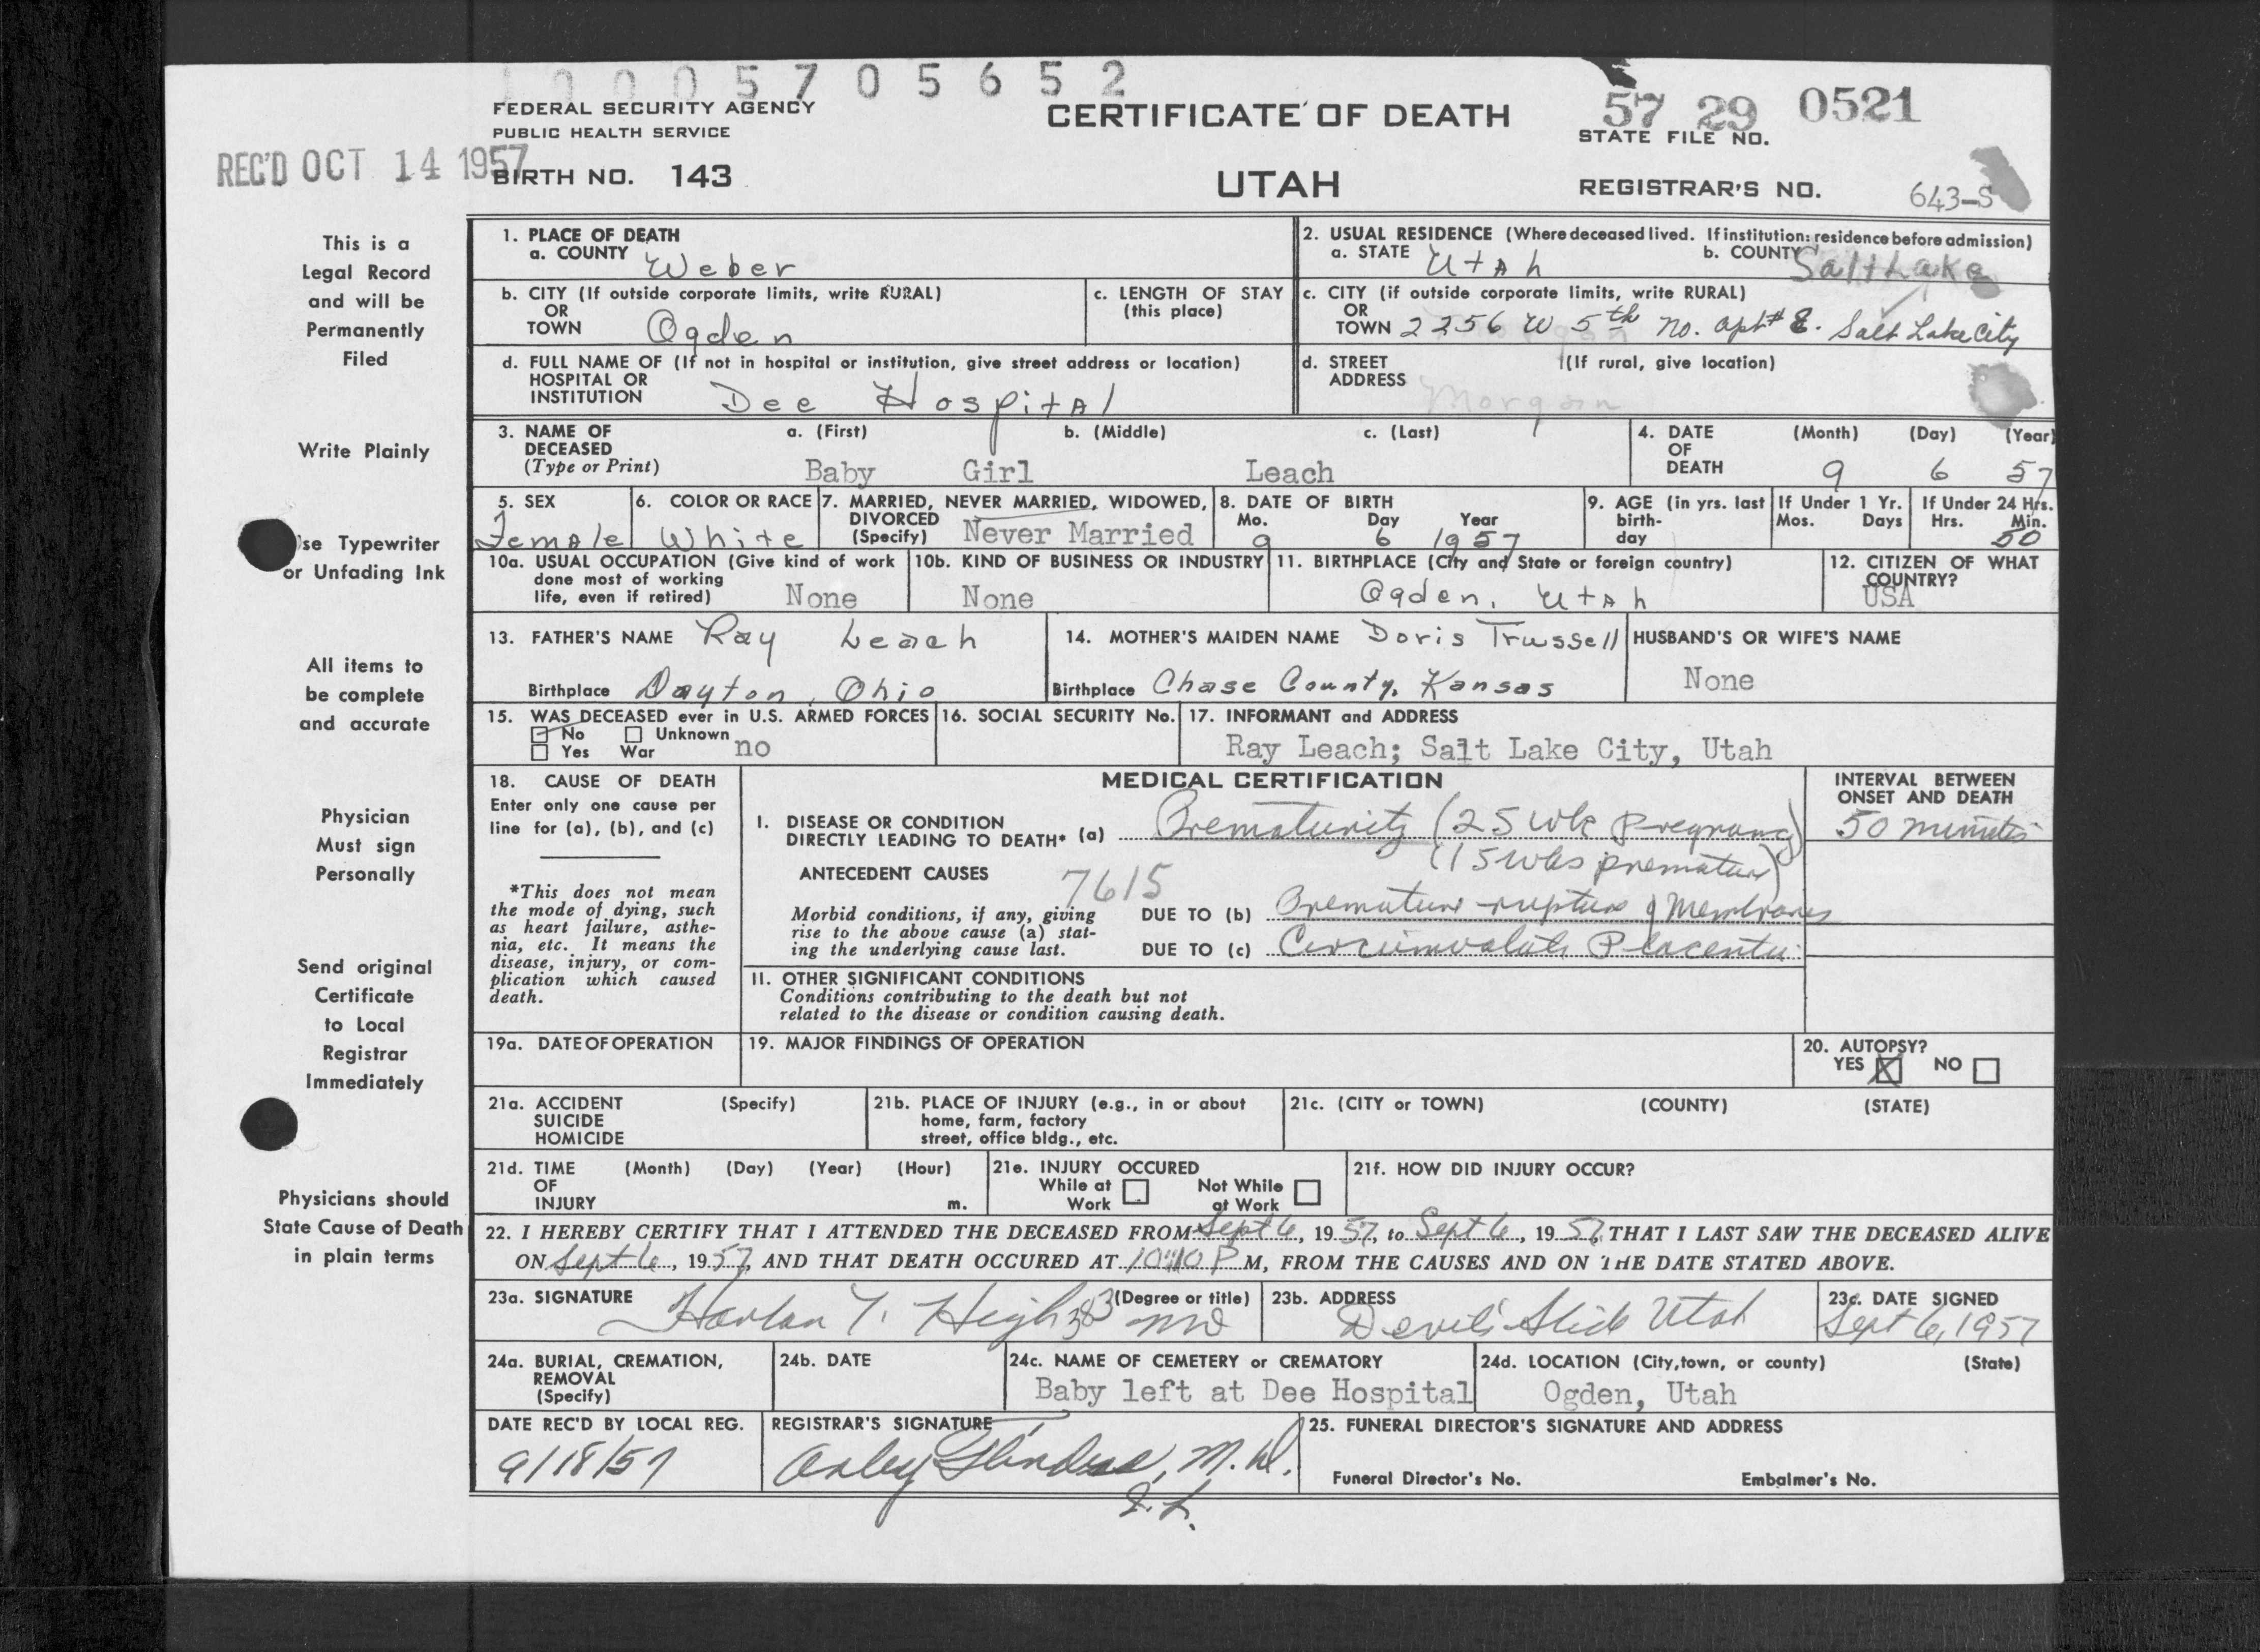 1 0 0 0 5 7 0 5 6 5 2
FEDERAL SECURITY AGENCY
PUBLIC HEALTH SERVICE
CERTIFICATE OF DEATH
57 29 0521
STATE FILE NO.
REC'D OCT 14 1957
BIRTH NO. 143
UTAH
REGISTRAR'S NO. 643-S
This is a
Legal Record
and will be
Permanently
Filed
Write Plainly
se Typewriter
or Unfading Ink
All items to
be complete
and accurate
Physician
Must sign
Personally
Send original
Certificate
to Local
Registrar
Immediately
Physicians should
State Cause of Death
in plain terms
1. PLACE OF DEATH
a. COUNTY Weber
2. USUAL RESIDENCE (Where deceased lived. If institution: residence before admission)
a. STATE Utah b. COUNTY Salt Lake
b. CITY (If outside corporate limits, write RURAL)
OR
TOWN Ogden
c. LENGTH OF STAY
(this place)
c. CITY (if outside corporate limits, write RURAL)
OR
TOWN 2256 W 5th No. apt # E. Salt Lake City
d. FULL NAME OF (If not in hospital or institution, give street address or location)
HOSPITAL OR
INSTITUTION Dee Hospital
d. STREET (If rural, give location)
ADDRESS
Morgan
3. NAME OF a. (First) b. (Middle) c. (Last)
DECEASED
(Type or Print) Baby Girl Leach
4. DATE (Month) (Day) (Year)
OF
DEATH 9 6 57
5. SEX
Female
6. COLOR OR RACE
White
7. MARRIED, NEVER MARRIED, WIDOWED,
DIVORCED
(Specify) Never Married
8. DATE OF BIRTH
Mo. Day Year
9 6 1957
9. AGE (in yrs. last
birth-
day
If Under 1 Yr.
Mos. Days
If Under 24 Hrs.
Hrs. Min.
50
10a. USUAL OCCUPATION (Give kind of work
done most of working
life, even if retired) None
10b. KIND OF BUSINESS OR INDUSTRY
None
11. BIRTHPLACE (City and State or foreign country)
Ogden, Utah
12. CITIZEN OF WHAT
COUNTRY?
USA
13. FATHER'S NAME Ray Leach
Birthplace Dayton, Ohio
14. MOTHER'S MAIDEN NAME Doris Trussell
Birthplace Chase County, Kansas
HUSBAND'S OR WIFE'S NAME
None
15. WAS DECEASED ever in U.S. ARMED FORCES
No Unknown
Yes War no
16. SOCIAL SECURITY No.
17. INFORMANT and ADDRESS
Ray Leach; Salt Lake City, Utah
18. CAUSE OF DEATH
Enter only one cause per
line for (a), (b), and (c)
*This does not mean
the mode of dying, such
as heart failure, asthe-
nia, etc. It means the
disease, injury, or com-
plication which caused
death.
MEDICAL CERTIFICATION
I. DISEASE OR CONDITION
DIRECTLY LEADING TO DEATH* (a) Prematurity (25 wk Pregnancy)
(15 wks premature)
ANTECEDENT CAUSES
7615
Morbid conditions, if any, giving
rise to the above cause (a) stat-
ing the underlying cause last.
DUE TO (b) Premature rupture of Membranes
DUE TO (c) Circumvalate Placenta
INTERVAL BETWEEN
ONSET AND DEATH
50 minutes
II. OTHER SIGNIFICANT CONDITIONS
Conditions contributing to the death but not
related to the disease or condition causing death.
19a. DATE OF OPERATION
19. MAJOR FINDINGS OF OPERATION
20. AUTOPSY?
YES X NO
21a. ACCIDENT (Specify)
SUICIDE
HOMICIDE
21b. PLACE OF INJURY (e.g., in or about
home, farm, factory
street, office bldg., etc.
21c. (CITY or TOWN) (COUNTY) (STATE)
21d. TIME (Month) (Day) (Year) (Hour)
OF
INJURY m.
21e. INJURY OCCURED
While at Not While
Work at Work
21f. HOW DID INJURY OCCUR?
22. I HEREBY CERTIFY THAT I ATTENDED THE DECEASED FROM Sept 6, 1957, to Sept 6, 1957, THAT I LAST SAW THE DECEASED ALIVE
ON Sept 6, 1957, AND THAT DEATH OCCURED AT 10:10 P M, FROM THE CAUSES AND ON THE DATE STATED ABOVE.
23a. SIGNATURE (Degree or title)
Harlan Y. High 383 MD
23b. ADDRESS
Devil's Slide Utah
23c. DATE SIGNED
Sept 6, 1957
24a. BURIAL, CREMATION,
REMOVAL
(Specify)
24b. DATE
24c. NAME OF CEMETERY or CREMATORY
Baby left at Dee Hospital
24d. LOCATION (City, town, or county) (State)
Ogden, Utah
DATE REC'D BY LOCAL REG.
9/18/57
REGISTRAR'S SIGNATURE
M.D.
25. FUNERAL DIRECTOR'S SIGNATURE AND ADDRESS
Funeral Director's No. Embalmer's No.